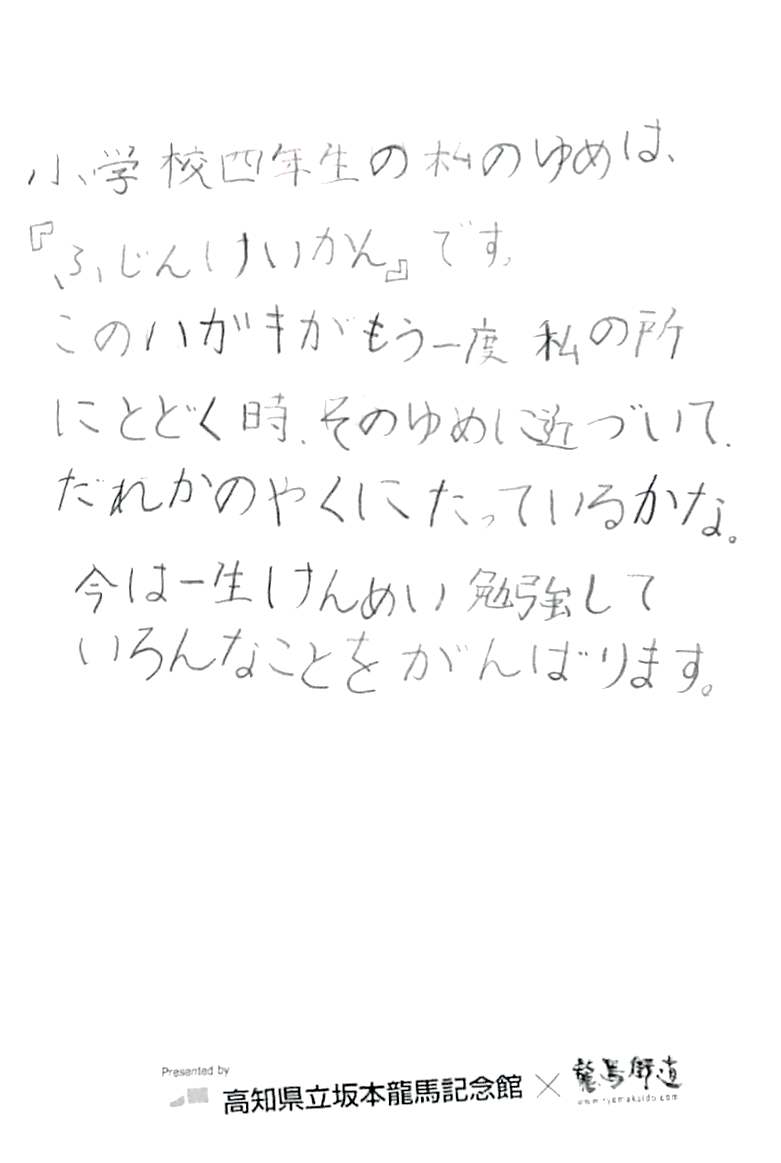 小学校四年生の私のゆめは、
『ふじんけいかん』です。
このハガキがもう一度私の所
にとどく時、そのゆめに近づいて、
だれかのやくにたっているかな。
今は一生けんめい勉強して
いろんなことをがんばります。
Presented by
高知県立坂本龍馬記念館×龍馬街道
www.ryomakaido.com